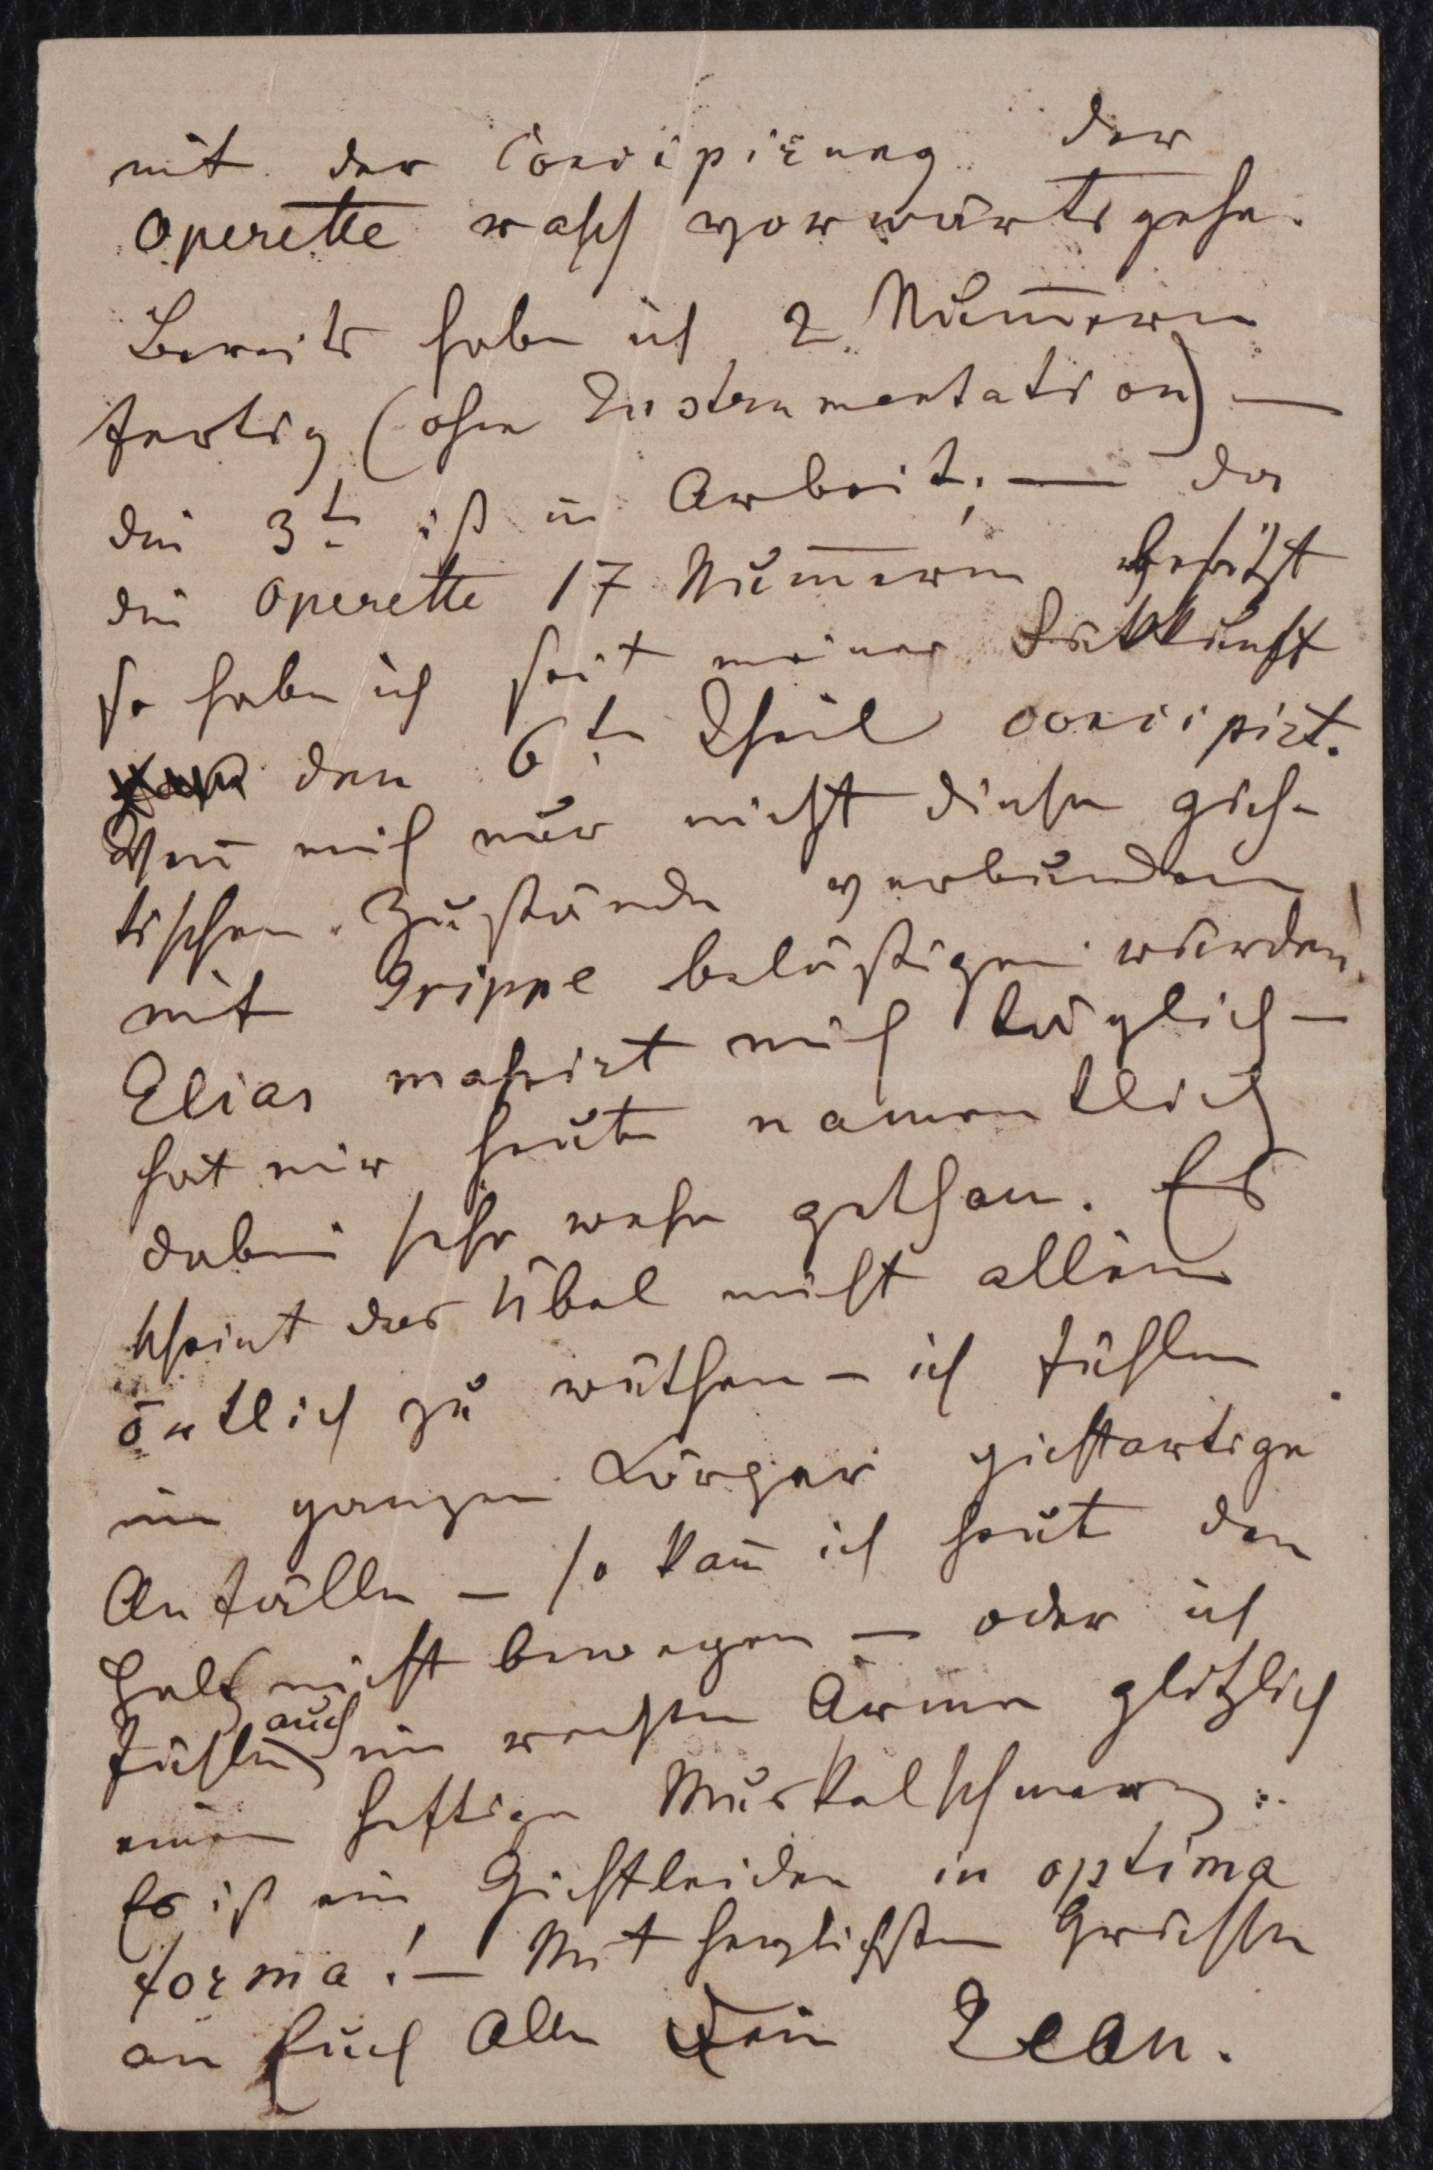 mit der Concipirung der
Operette rasch vorwärts gehe.
Bereits habe ich 2 Num̅ern
fertig (ohne Instrumentation) —
die 3te ist in Arbeit; — da
die Operette 17 Num̅ern besitzt
so habe ich seit meiner
den 6ten Theil concipirt.
Wen̅ mich nur nicht diese gich-
tischen Zustände verbunden
mit Grippe belästigen würden!
Elias massirt mich täglich —
hat mir heute namentlich
dabei sehr wehe gethan. Es
scheint das Übel nicht allein
örtlich zu wüthen — ich fühle
im ganzen Körper gichtartige
Anfälle — so kan̅ ich heut den
Hals nicht bewegen — oder ich
fühle auch im rechten Arme plötzlich
einen heftigen Muskelschmerz.
Es ist ein Gichtleiden in optima
forma! — Mit herzlichsten Grüssen
an Euch Alle Dein Jean.